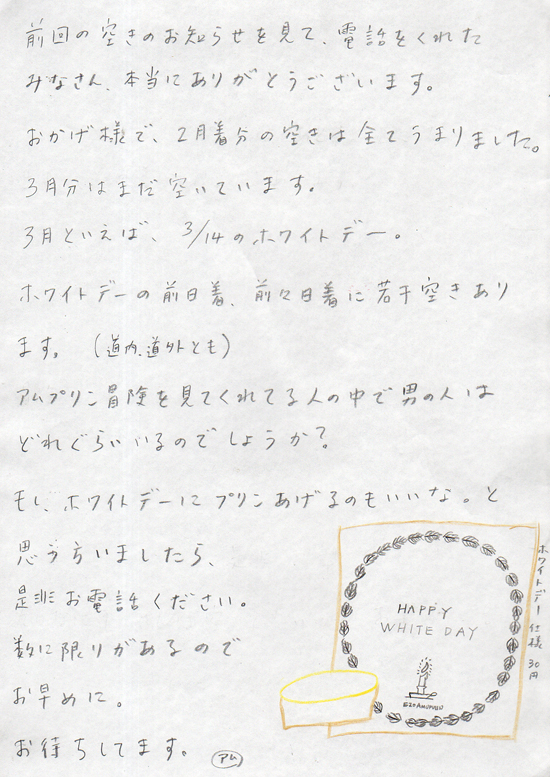 前回の空きのお知らせを見て、電話をくれた
みなさん、本当にありがとうございます。
おかげ様で、2月着分の空きは全てうまりました。
3月分はまだ空いています。
3月といえば、3/14のホワイトデー。
ホワイトデーの前日着、前々日着に若干空きあり
ます。(道内、道外とも)
アムプリン冒険を見てくれてる人の中で男の人は
どれぐらいいるのでしょうか?
もし、ホワイトデーにプリンあげるのもいいな。と
思う方いましたら、
是非お電話ください。
数に限りがあるので
お早めに。
お待ちしてます。
アム
HAPPY
WHITE DAY
EZOAMUPURIN
ホワイトデー仕様 30円